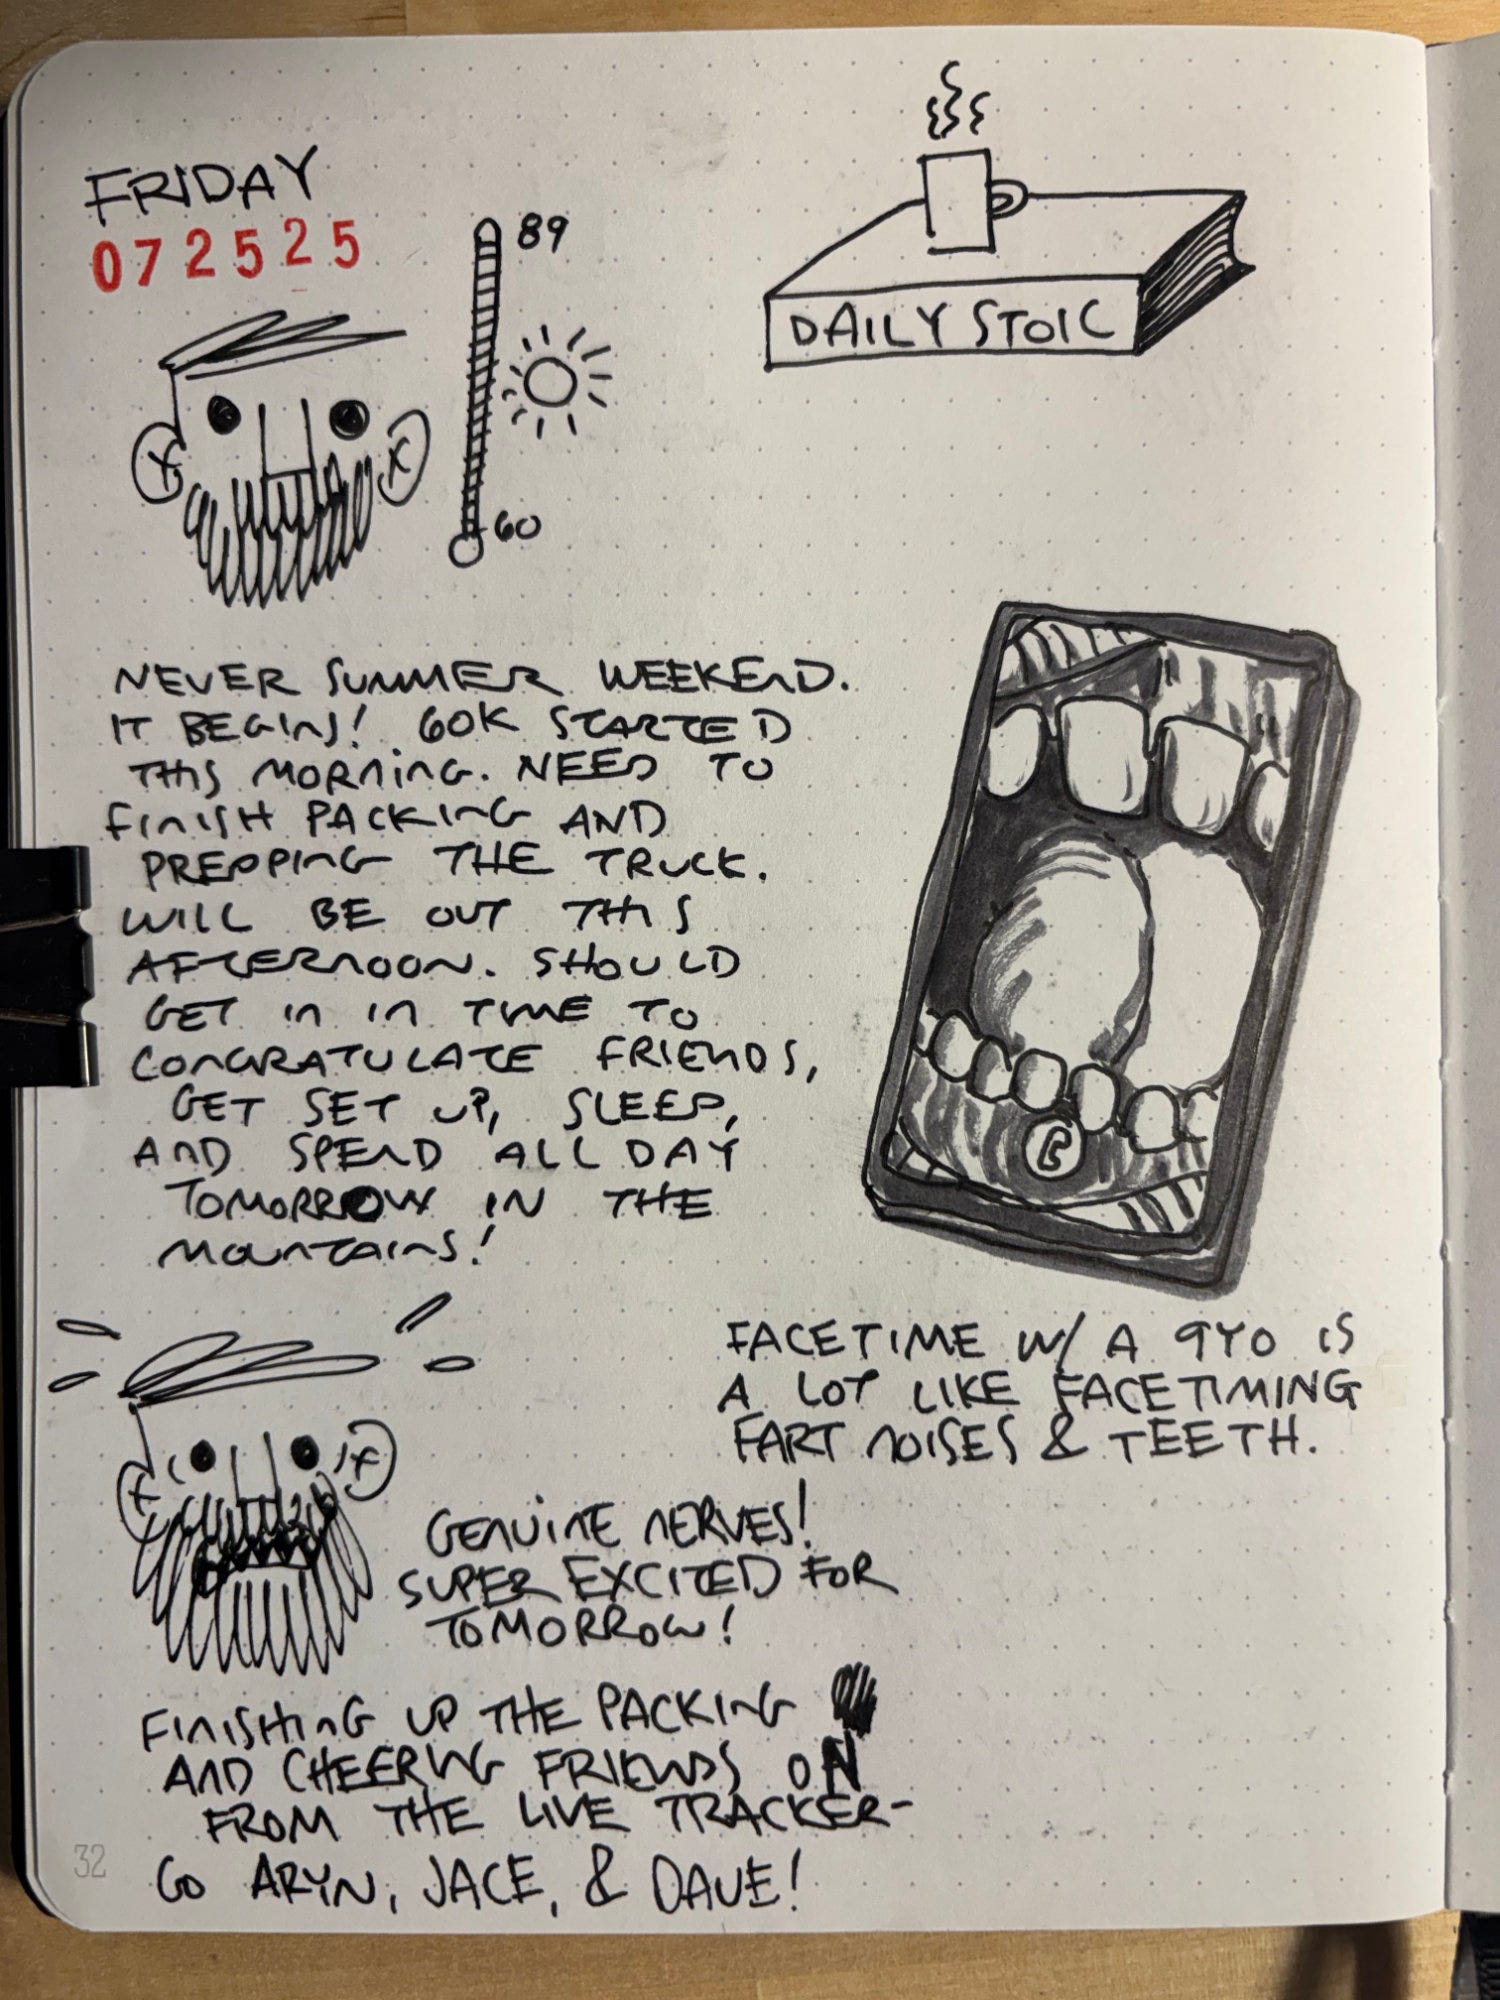 FRIDAY
072525
89
60
DAILY STOIC
NEVER SUMMER WEEKEND.
IT BEGINS! 60K STARTED
THIS MORNING. NEED TO
FINISH PACKING AND
PREPPING THE TRUCK.
WILL BE OUT THIS
AFTERNOON. SHOULD
GET IN IN TIME TO
CONGRATULATE FRIENDS,
GET SET UP, SLEEP,
AND SPEND ALL DAY
TOMORROW IN THE
MOUNTAINS!
FACETIME W/ A 9YO IS
A LOT LIKE FACETIMING
FART NOISES & TEETH.
GENUINE NERVES!
SUPER EXCITED FOR
TOMORROW!
FINISHING UP THE PACKING
AND CHEERING FRIENDS ON
FROM THE LIVE TRACKER-
GO ARYN, JACE, & DAVE!
32